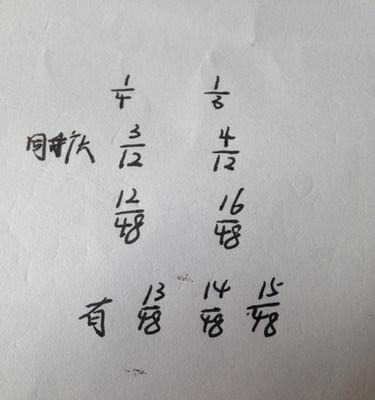 1/4 1/3
同时扩大 3/12 4/12
12/48 16/48
有 13/48 14/48 15/48